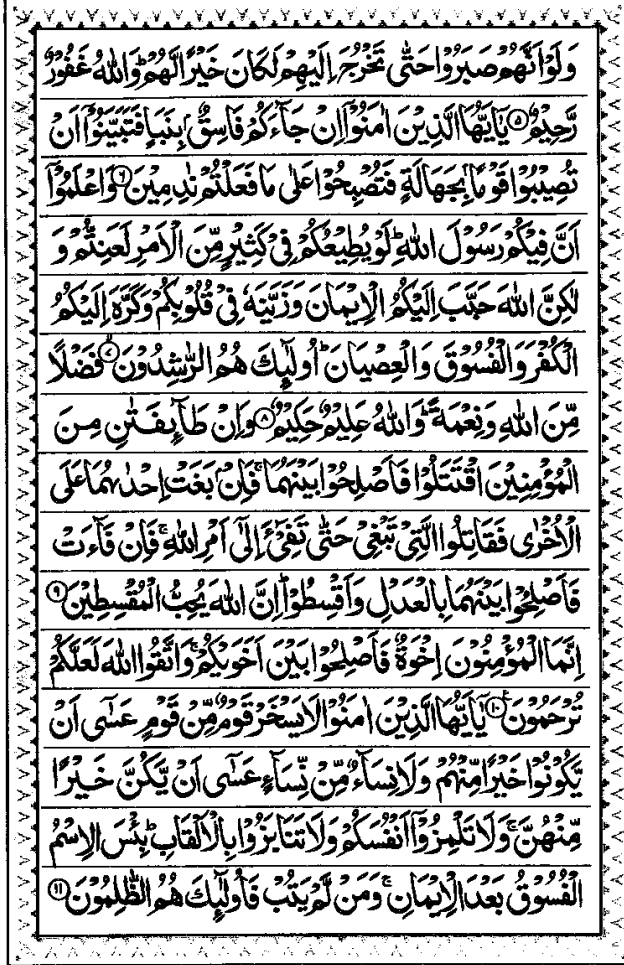 وَلَوْ اَنَّهُمْ صَبَرُوْا حَتّٰى تَخْرُجَ اِلَيْهِمْ لَكَانَ خَيْرًا لَّهُمْ ؕ وَاللّٰهُ غَفُوْرٌ
رَّحِيْمٌ ۵ يٰۤاَيُّهَا الَّذِيْنَ اٰمَنُوْۤا اِنْ جَآءَكُمْ فَاسِقٌۢ بِنَبَاٍ فَتَبَيَّنُوْۤا اَنْ
تُصِيْبُوْا قَوْمًۢا بِجَهَالَةٍ فَتُصْبِحُوْا عَلٰى مَا فَعَلْتُمْ نٰدِمِيْنَ ۶ وَاعْلَمُوْۤا
اَنَّ فِيْكُمْ رَسُوْلَ اللّٰهِ ؕ لَوْ يُطِيْعُكُمْ فِيْ كَثِيْرٍ مِّنَ الْاَمْرِ لَعَنِتُّمْ وَ
لٰكِنَّ اللّٰهَ حَبَّبَ اِلَيْكُمُ الْاِيْمَانَ وَزَيَّنَهٗ فِيْ قُلُوْبِكُمْ وَكَرَّهَ اِلَيْكُمُ
الْكُفْرَ وَالْفُسُوْقَ وَالْعِصْيَانَ ؕ اُولٰٓئِكَ هُمُ الرّٰشِدُوْنَ ۷ فَضْلًا
مِّنَ اللّٰهِ وَنِعْمَةً ؕ وَاللّٰهُ عَلِيْمٌ حَكِيْمٌ ۸ وَاِنْ طَآئِفَتٰنِ مِنَ
الْمُؤْمِنِيْنَ اقْتَتَلُوْا فَاَصْلِحُوْا بَيْنَهُمَا ۚ فَاِنْۢ بَغَتْ اِحْدٰىهُمَا عَلَى
الْاُخْرٰى فَقَاتِلُوا الَّتِيْ تَبْغِيْ حَتّٰى تَفِيْٓءَ اِلٰٓى اَمْرِ اللّٰهِ ۚ فَاِنْ فَآءَتْ
فَاَصْلِحُوْا بَيْنَهُمَا بِالْعَدْلِ وَاَقْسِطُوْا ؕ اِنَّ اللّٰهَ يُحِبُّ الْمُقْسِطِيْنَ ۹
اِنَّمَا الْمُؤْمِنُوْنَ اِخْوَةٌ فَاَصْلِحُوْا بَيْنَ اَخَوَيْكُمْ ۚ وَاتَّقُوا اللّٰهَ لَعَلَّكُمْ
تُرْحَمُوْنَ ۱۰ يٰۤاَيُّهَا الَّذِيْنَ اٰمَنُوْا لَا يَسْخَرْ قَوْمٌ مِّنْ قَوْمٍ عَسٰٓى اَنْ
يَّكُوْنُوْا خَيْرًا مِّنْهُمْ وَلَا نِسَآءٌ مِّنْ نِّسَآءٍ عَسٰٓى اَنْ يَّكُنَّ خَيْرًا
مِّنْهُنَّ ۚ وَلَا تَلْمِزُوْۤا اَنْفُسَكُمْ وَلَا تَنَابَزُوْا بِالْاَلْقَابِ ؕ بِئْسَ الِاسْمُ
الْفُسُوْقُ بَعْدَ الْاِيْمَانِ ۚ وَمَنْ لَّمْ يَتُبْ فَاُولٰٓئِكَ هُمُ الظّٰلِمُوْنَ ۱۱